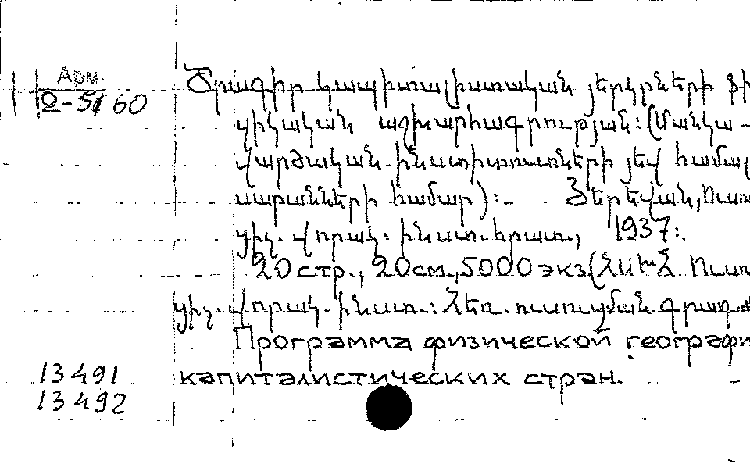 Арм.
2-5/60
Ծրագիր կապիտալիստական յերկրների ֆի-
զիկական աշխարհագրության: (Մանկա-
վարժական ինստիտուտների յեվ համալ
սարանների համար): Յերեվան, Ուսո
յիչ. վորակ. ինստ. հրատ., 1937:
20 стр., 20 см., 5000 экз. (ՀԽՍՀ Ուսո
յիչ. վորակ. ինստ.: Հեռ. ուսուցման գրադ
Программа физической географи
капиталистических стран.
13491
13492